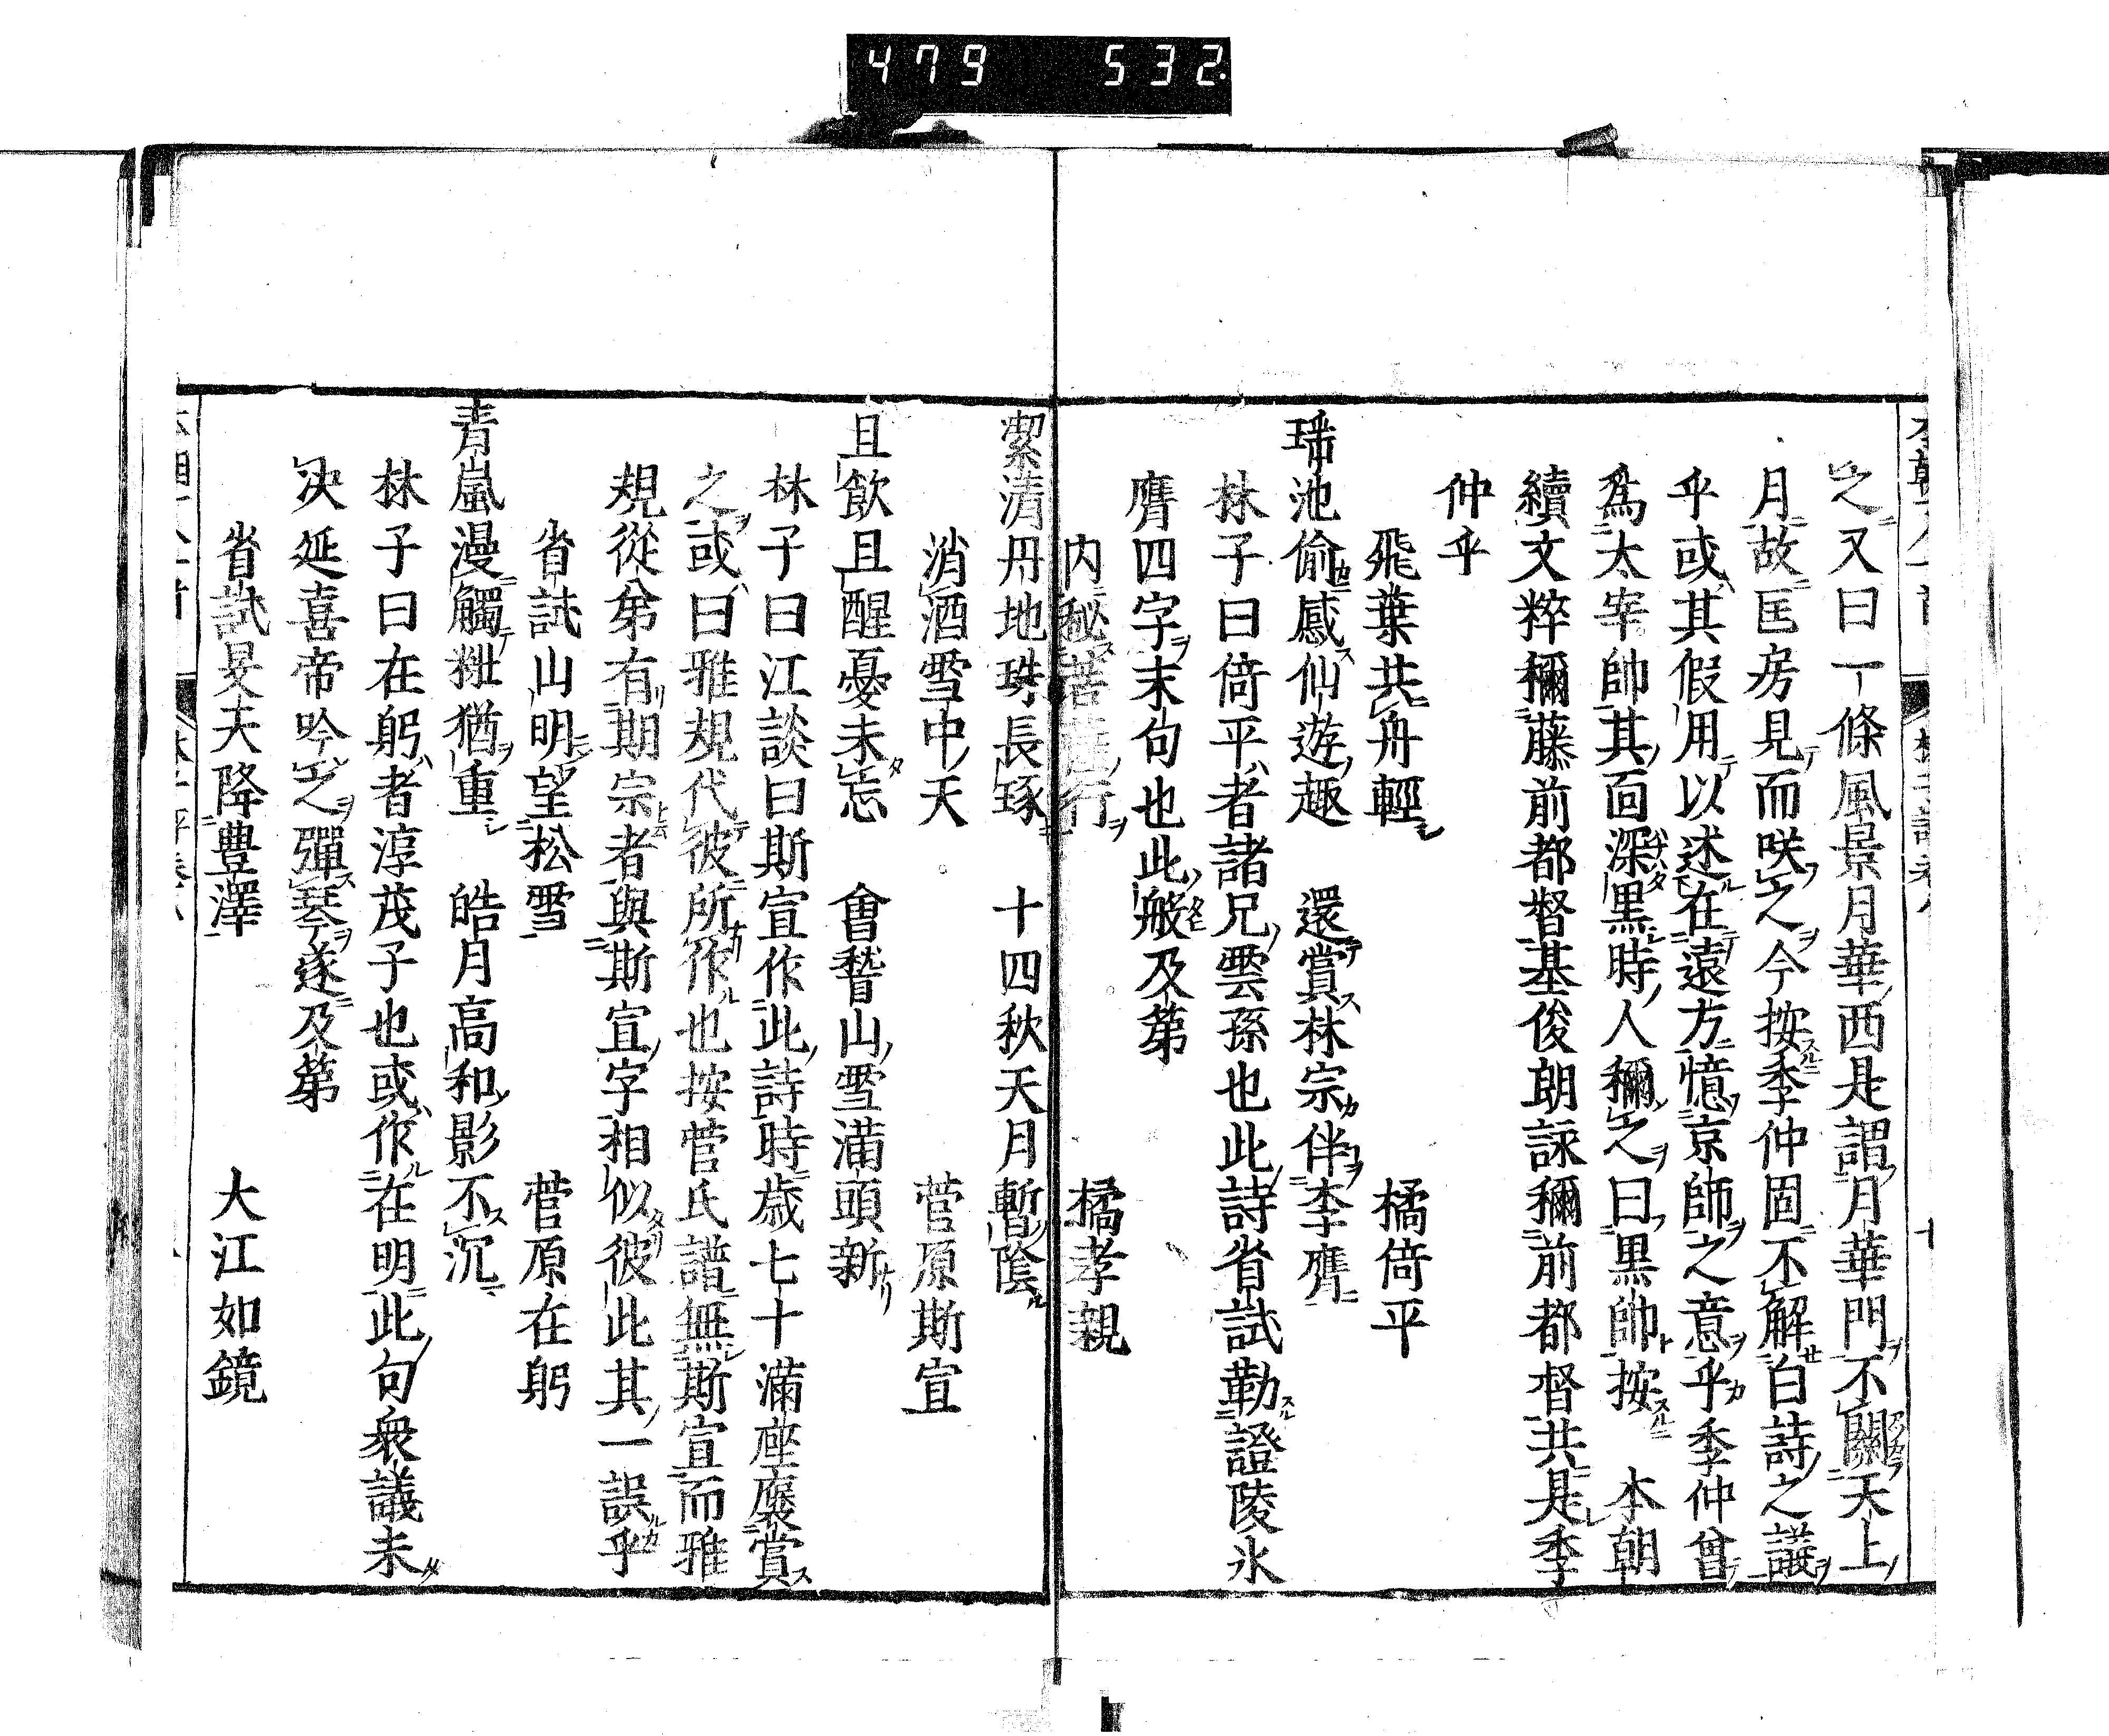 479 532.
之又曰一條風景月華西是謂月華門不關天上
月故匡房見而咲之今按季仲固不解白詩之議
乎或其假用以述在遠方憶京師之意乎季仲曾
爲太宰帥其面深黒時人稱之曰黒帥按 本朝
續文粹稱藤前都督基俊朗詠稱前都督共是季
仲乎
飛葉共舟輕 橘倚平
瑤池偷感仙遊趣 還賞林宗伴李膺
林子曰倚平者諸兄雲孫也此詩省試勒澄陵氷
膺四字末句也此般及第
内秘菩薩行 橘孝親
潔清丹地珠長琢 十四秋天月暫陰
消酒雪中天 菅原斯宣
且飲且醒憂未忘 會稽山雪滿頭新
林子曰江談曰斯宣作此詩時歳七十滿座褒賞
之或曰雅規代彼所作也按菅氏譜無斯宣而雅
規從弟有期宗者與斯宣字相似彼此其一誤乎
省試山明望松雪 菅原在躬
青嵐漫觸粧猶重 皓月高和影不沉
林子曰在躬者淳茂子也或作在明此句衆議未
决延喜帝吟之彈琴遂及第
省試旻天降豊澤 大江如鏡